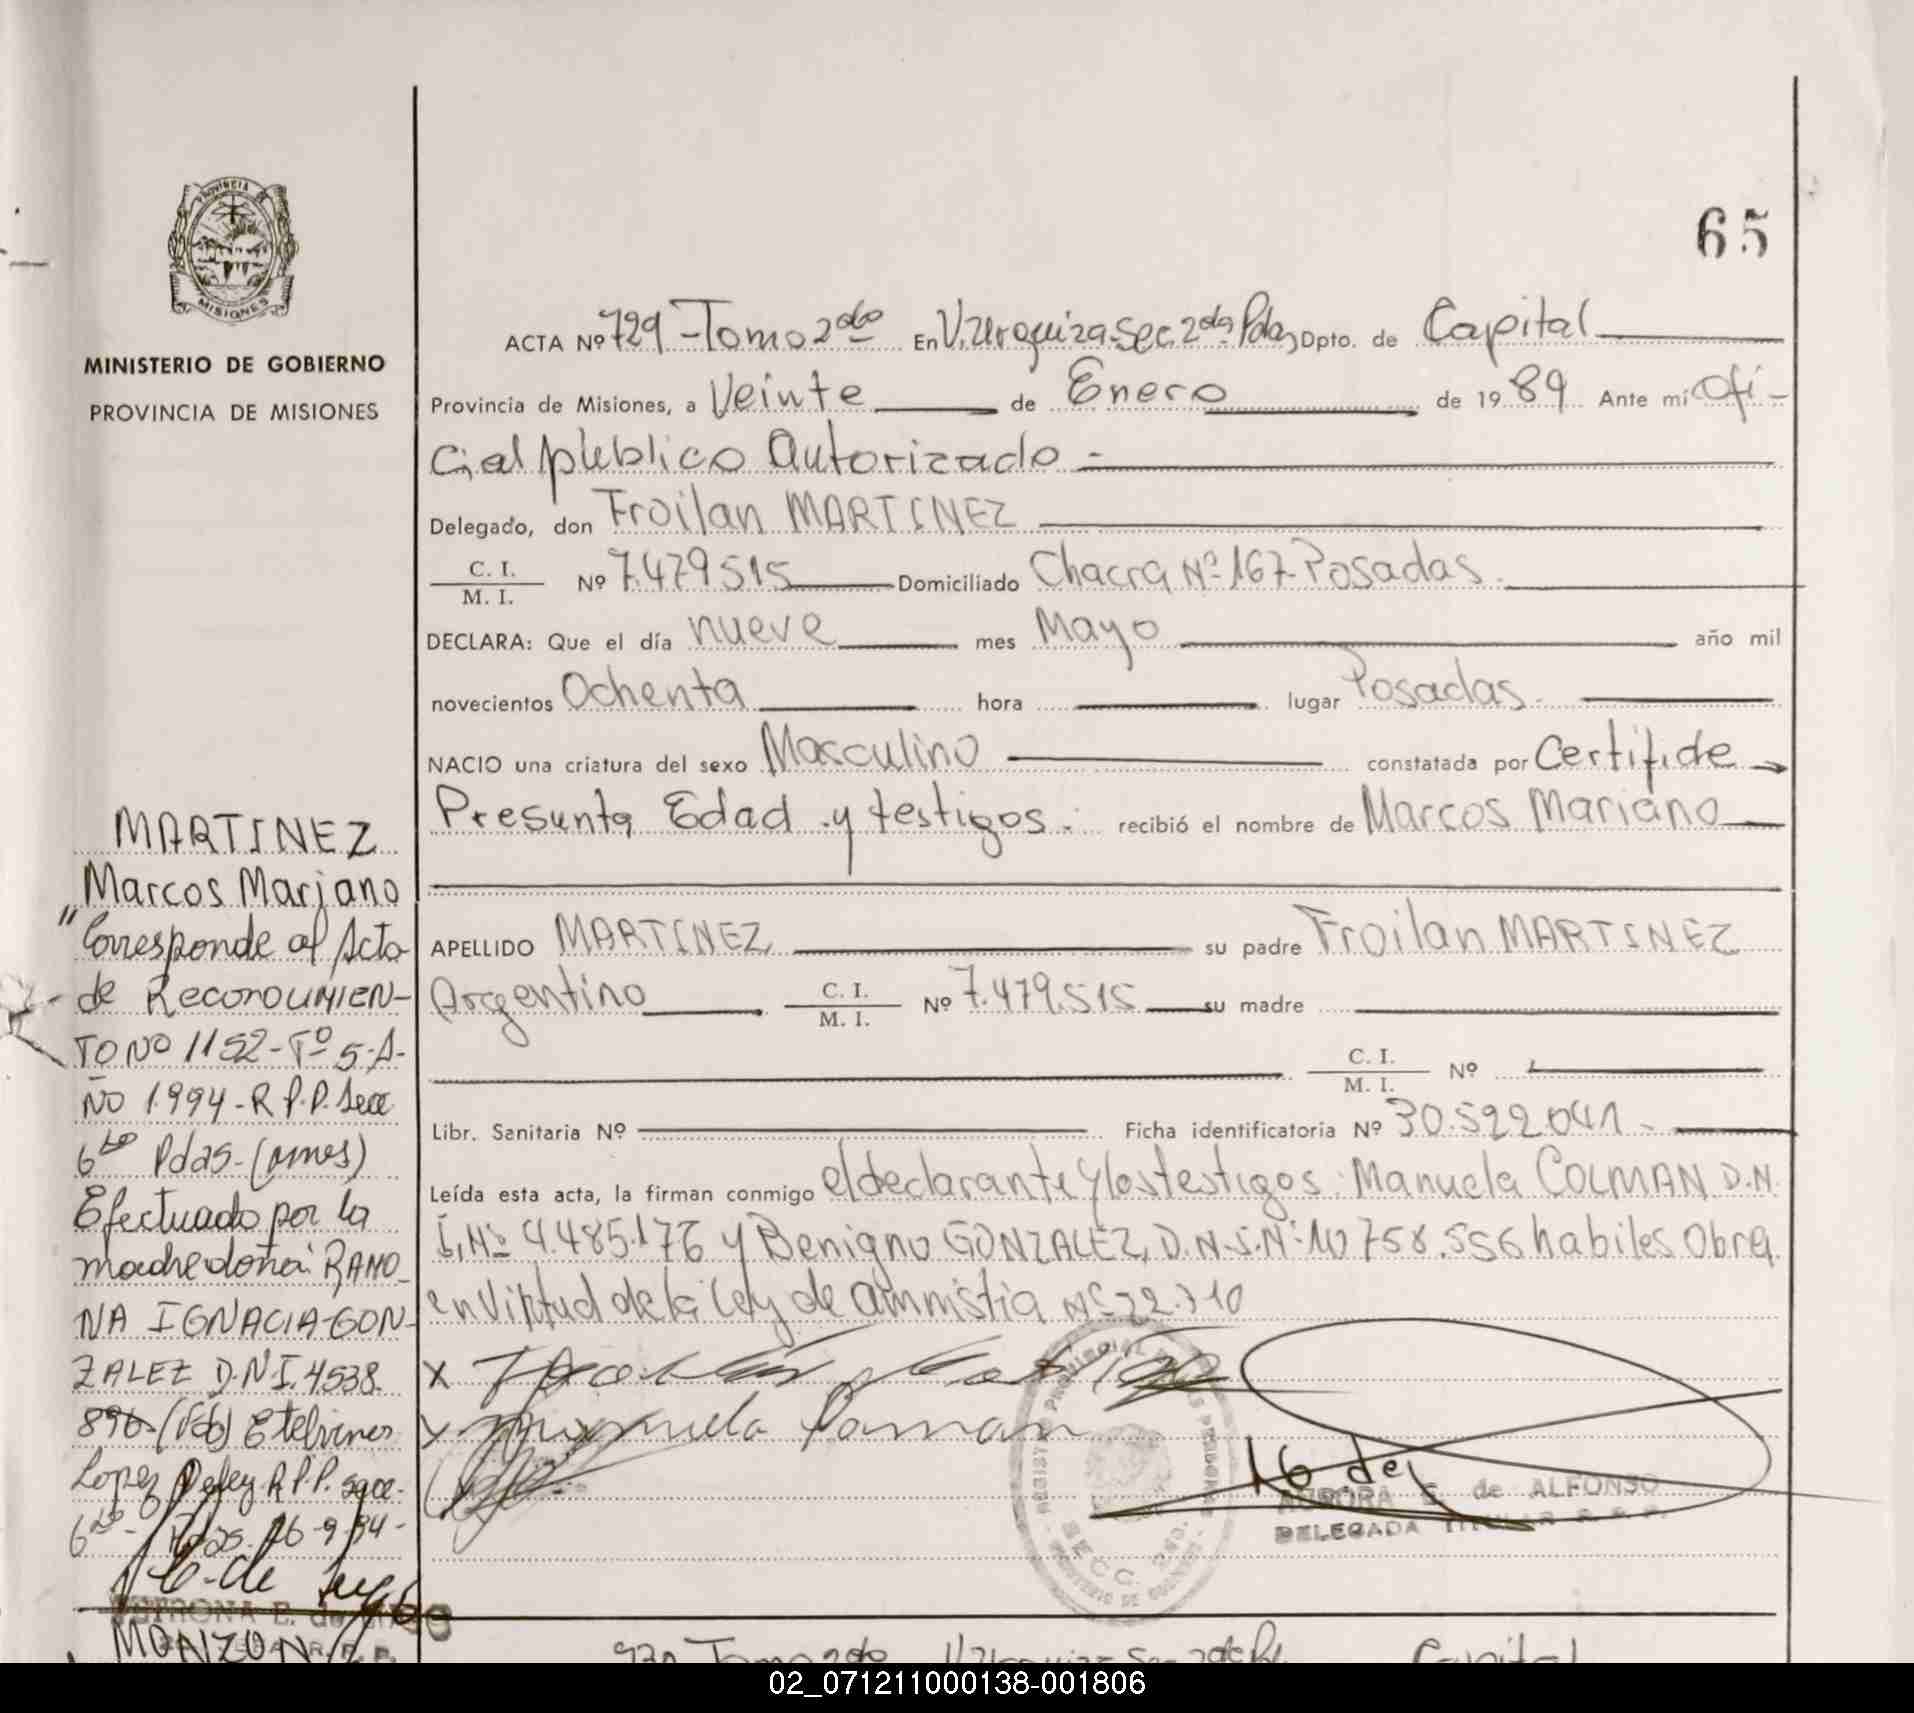 65
PROVINCIA
MISIONES
MINISTERIO DE GOBIERNO
PROVINCIA DE MISIONES
ACTA Nº 729 - Tomo 2do En V. Urquiza Sec. 2da Pdas, Dpto. de Capital
Provincia de Misiones, a Veinte de Enero de 1989 Ante mí Ofi-
cial publico Autorizado -
Delegado, don Froilan MARTINEZ
C. I.
M. I. Nº 7.479.515 Domiciliado Chacra Nº 167 - Posadas.
DECLARA: Que el día nueve mes Mayo año mil
novecientos Ochenta hora lugar Posadas.
NACIO una criatura del sexo Masculino constatada por Certifi de
Presunta Edad y testigos. recibió el nombre de Marcos Mariano
APELLIDO MARTINEZ su padre Froilan MARTINEZ
Argentino C. I.
M. I. Nº 7.479.515 su madre
C. I.
M. I. Nº
Libr. Sanitaria Nº Ficha identificatoria Nº 30.522.041 -
Leída esta acta, la firman conmigo el declarante y los testigos: Manuela COLMAN D.N.
I. Nº 4.485.176 y Benigno GONZALEZ, D.N.I. Nº 10758.556 habiles Obra
en Virtud de la Ley de amnistia Nº
MARTINEZ
Marcos Mariano
"Corresponde al Acta
de RECONOCIMIEN-
TO Nº 1152 - Tº 5 - A-
ÑO 1.994 - R.P.P. Secc
6ta Pdas -
Efectuado por la
madre doña: RAMO-
NA IGNACIA GON-
ZALEZ D.N.I. 4538.
896 - (Fdo) Etelvina
Lopez R.P.P. secc.
6ta - Pdas. 26-9-94 -
x
Manuela
SECC. 2da.
16 de
AURORA E. de ALFONSO
DELEGADA TITULAR R. P. P.
MONZON
Tomo 2do Capital
02_071211000138-001806